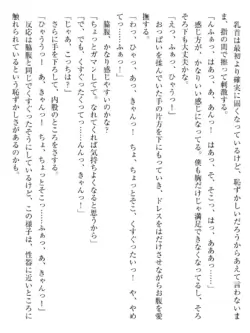 乳首は最初より確実に固くなっているけど、恥ずかしいだろうからあえて言わないま
ま、指の間で挟んで刺激する。
「んふぁ……はぁ、はふっ、んんっ……はぁ、あああっ……」
感じ方が、かなりいい感じになってる。僕も胸だけじゃ満足できなくなってるし、そろ
そろ下も大丈夫かな。
「えっ、ふぁっ、ひゃうんっ！」
おっぱいを揉んでいた手の片方を下にもっていき、ドレスをはだけさせながらお腹を愛
撫する。
「わっ、ひゃうっ、あっ、きゃんっ！　ちょ、くすぐったいっ！　や、やめ
てっ……ふぁっ！」
脇腹、かなり感じやすいのかな？
「ちょっとガマンしてて。なれてくれば気持ちよくなると思うから」
「ひゃうっ、あっ、ああっ、きゃんっ！」
「じゃあ、こっちは？」
さらに手を下ろして、内股のところをさする。
「ひゃうっ！　あっ、あっ、ちょ、ちょっとそこ、くすぐったいっ……きゃんっ！
あっ、ふぁっ、あ、あんっ、きゃんっ！　ちょ、ちょっとそこ、ふぁぁっ、あっ！」
反応は脇腹と同じでくすぐったそうにしているけど、この様子は、性器に近いところに
触れられているという恥ずかしさがあるのかも。